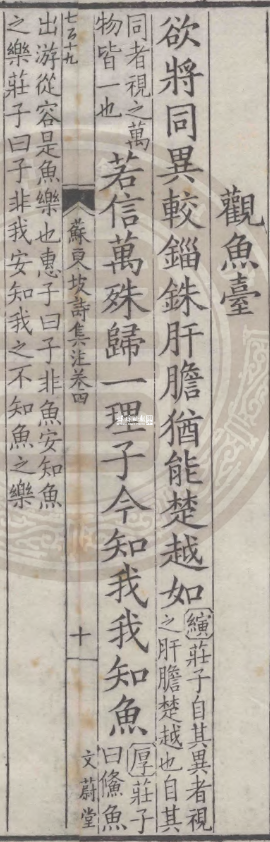 觀魚臺
欲將同異較錙銖肝膽猶能楚越如
縯莊子自其異者視
之肝膽楚越也自其
同者視之萬
物皆一也
若信萬殊歸一理子今知我我知魚
厚莊子
曰鯈魚
七百十九
蘇東坡詩集注卷四
十
文蔚堂
出游從容是魚樂也惠子曰子非魚安知魚
之樂莊子曰子非我安知我之不知魚之樂